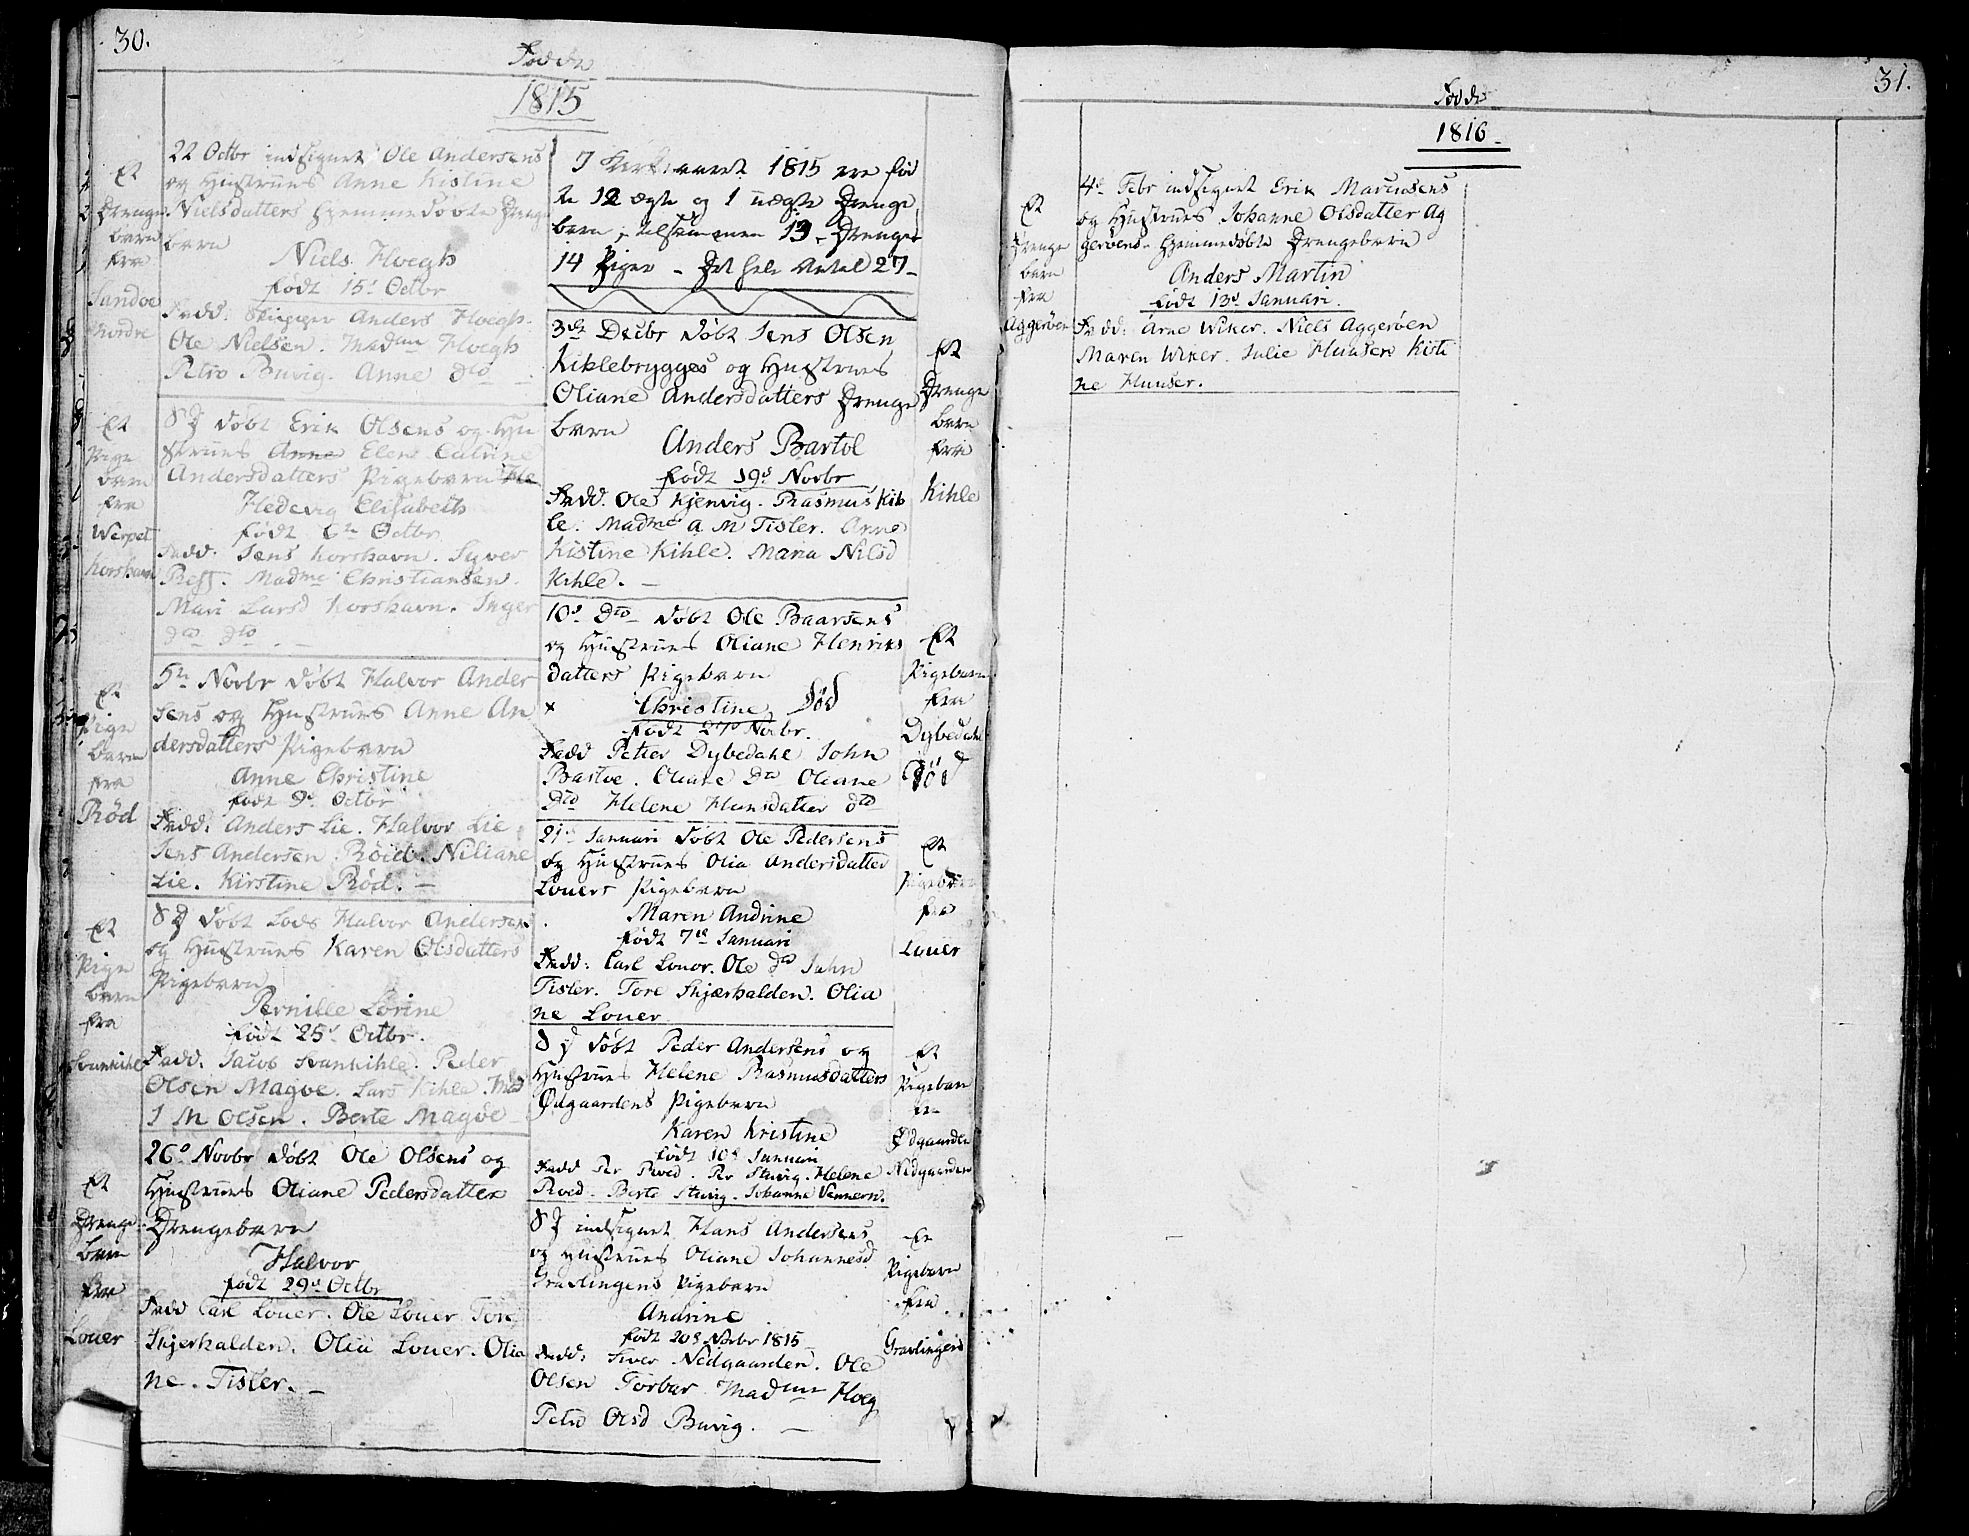 30.
Fødde
1815
Et
Drenge
barn
fra
Sandøe
Nordre
22 Octbr indsignet Ole Andersens
og Hustrues Anne Kistine
Nielsdatters hjemmedøbte Drenge
barn
Niels Hoegh
født 15d Octbr
Fadd: Skipper Anders Hoegh.
Ole Nielsen. Madme Hoegh
Petro Buvig. Anne Dto
Et
Pige
barn
fra
Werpet
Korshavn
8 J døbt Erik Olsens og Hu
strues Anne Elen Catrine
Andersdatters Pigebarn He
Hedevig Elisabeth
født 6te Octbr
Fadd: Jens Korshavn. Syver
Madme Christiansen.
Mari Larsd Korshavn. Inger
Dto Dto
Et
Pige
barn
fra
Rød
5te Novbr døbt Halvor Ander
sens og Hustrues Anne An
dersdatters Pigebarn
Anne Christine
født 9d Octbr
Fadd: Anders Lie. Halvor Lie
Jens Andersen Röid. Niliane
Lie. Kirstine Rød. —
Et
Pige
barn
fra
Svankihl
8 J døbt Lods Halvor Andersens
og Hustrues Karen Olsdatters
Pigebarn
Pernille Lorine
født 25d Octbr.
Fadd: Jacob Svankihle. Peder
Olsen Magøe. Lars Kihle. Mad
J M Olsen. Berte Magøe
Et
Drenge
barn
fra
Louer
26d Novbr døbt Ole Olsens og
Hustrues Oliane Pedersdatter
Drengebarn
Halvor
født 29d Octbr
Fadd Carl Louer. Ole Louer Tore
Skjerhalden. Olia Louer. Olia
ne. Tisler. —
I Kirkeaaret 1815 ere fød
te 12 ægte og 1 uægte Drenge
barn, tilsammen 13 Drenger
14 Piger - Det hele Antal 27
3die Decbr døbt Jens Olsen
Kiklebrygges og Hustrues
Oliane Andersdatters Drenge
barn
Anders Bartol
født 19d Novbr
Fadd. Ole Kjenvig. Rasmus Kih
le. Madme A M Tisler. Anne
Kistine Kihle. Maria Nilsd
Kihle. —
Et
Drenge
barn
fra
Kihle
10d Dto døbt Ole Baarsens
og Hustrues Oliane Henriks
datters Pigebarn
x Christine Död
født 27d Novbr.
Fadd Petter Dybedahl John
Bastøe. Oliane Dto Oliane
Dto Helene Hansdatter dto
Et
Pigebarn
fra
Dybedahl
Död
21d Januari døbt Ole Pedersens
og Hustrues Olia Andersdatter
Louers Pigebarn
Maren Andrine
født 7de Januari
Fadd: Carl Louer. Ole Dto John
Tisler. Tore Skjærhalden. Olia
ne Louer
Et
Pigebarn
fra
Louer
8 J døbt Peder Andersens og
Hustrues Helene Rasmusdatters
Ødgaardens Pigebarn
Karen Kristine
født 10d Januari
Fadd Per Roed. Per Stuvig. Helene
Roed. Berte Stuvig. Johanne Vennern.
Et
Pigebarn
fra
Ødgaarden
Nedgaarden
8 J indsignet Hans Andersens
og Hustrues Oliane Johannesd
Gravlingens Pigebarn
Andrine
født 20d Novbr 1815
Fadd: Siver Nedgaarden. Ole
Olsen Torbar Madme Hoeg
Petro Olsd Buvig. —
Et
Pigebarn
fra
Gravlingen
31.
Fødde
1816
Et
Drenge
barn
fra
Aggerøen
4d Febr indsignet Erik Marcusens
og Hustrues Johanne Olsdatter Ag
gerøens hjemmedøbte Drengebarn
Anders Martin
født 13d Januari.
Fadd: Arne Wiker. Niels Aggerøen
Maren Wiker. Julie Huuser Kisti
ne Huuser.